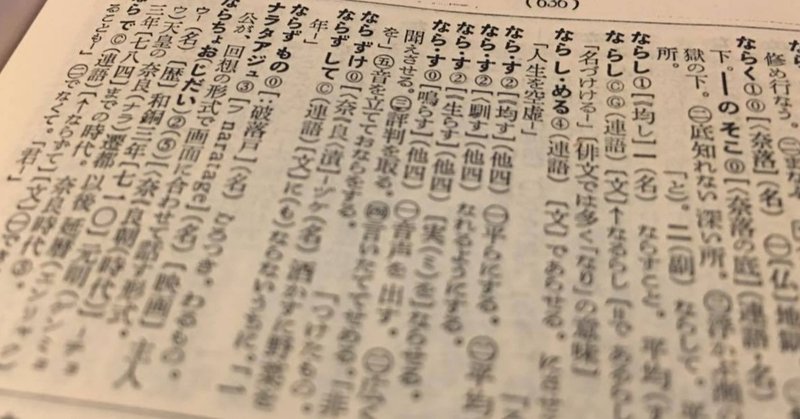 修め行なう。
ならく①⓪【<奈落】(名) ㊀[仏]地獄
下。―のそこ⓪【<奈落の底】(連語・名)
獄の下。㊁底知れない深い所。
所。 と)。二(副) ならして。
ならし①【均し】一(名) ならすこと。平均
ならし(連語)[文]↑なるらし =であるらし
「名づけける―」(俳文では多く「なり」の意味
ならし・める④(連語)[文]であらせる。にさせ
「人生を空虚―」
なら・す②【均す】(他四) ㊀平らにする。㊁平均
なら・す②【馴す】(他四) なれるようにする。
なら・す②【生らす】(他四) [実(ミ)を]ならせる。
なら・す⓪【鳴らす】(他四) ㊀音声を出す。
聞えさせる。㊂評判を取る。㊃言いたててせめる。「非
を―」㊄音を立てておならをする。
ならずけ⓪【<奈良<漬】=ヅケ(名)酒かすに野菜を つけたもの。
ならずして©(連語)[文]に(も)ならないうちに。「一
年―」
ならずもの⓪【:破落戸】(名) ごろつき。わるもの。
ナラタアジュ③[フ naratage](名)[映画]主人
公が、回想の形式で画面に合わせて話す形式。
ならちょお(じだい)②(⑤)【<奈良朝(時代)】―チョ
ウ―(名)[歴]和銅三年(七一〇)元明(ゲンミョ
ウ)天皇の奈良(ナラ)遷都以後、延暦(エンリャク)
三年(七八四)までの時代。奈良時代。
ならで©(連語)(↑ならずて)[文]
るとも―」㊁でなくて。「君―」
(636)